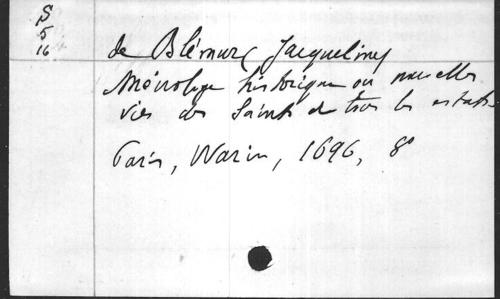 S
5
16
de Blémur (Jacqueline)
Ménologe historique ou nouvelles
vies des Saints de tous les estats
Paris, Warin, 1696, 8°